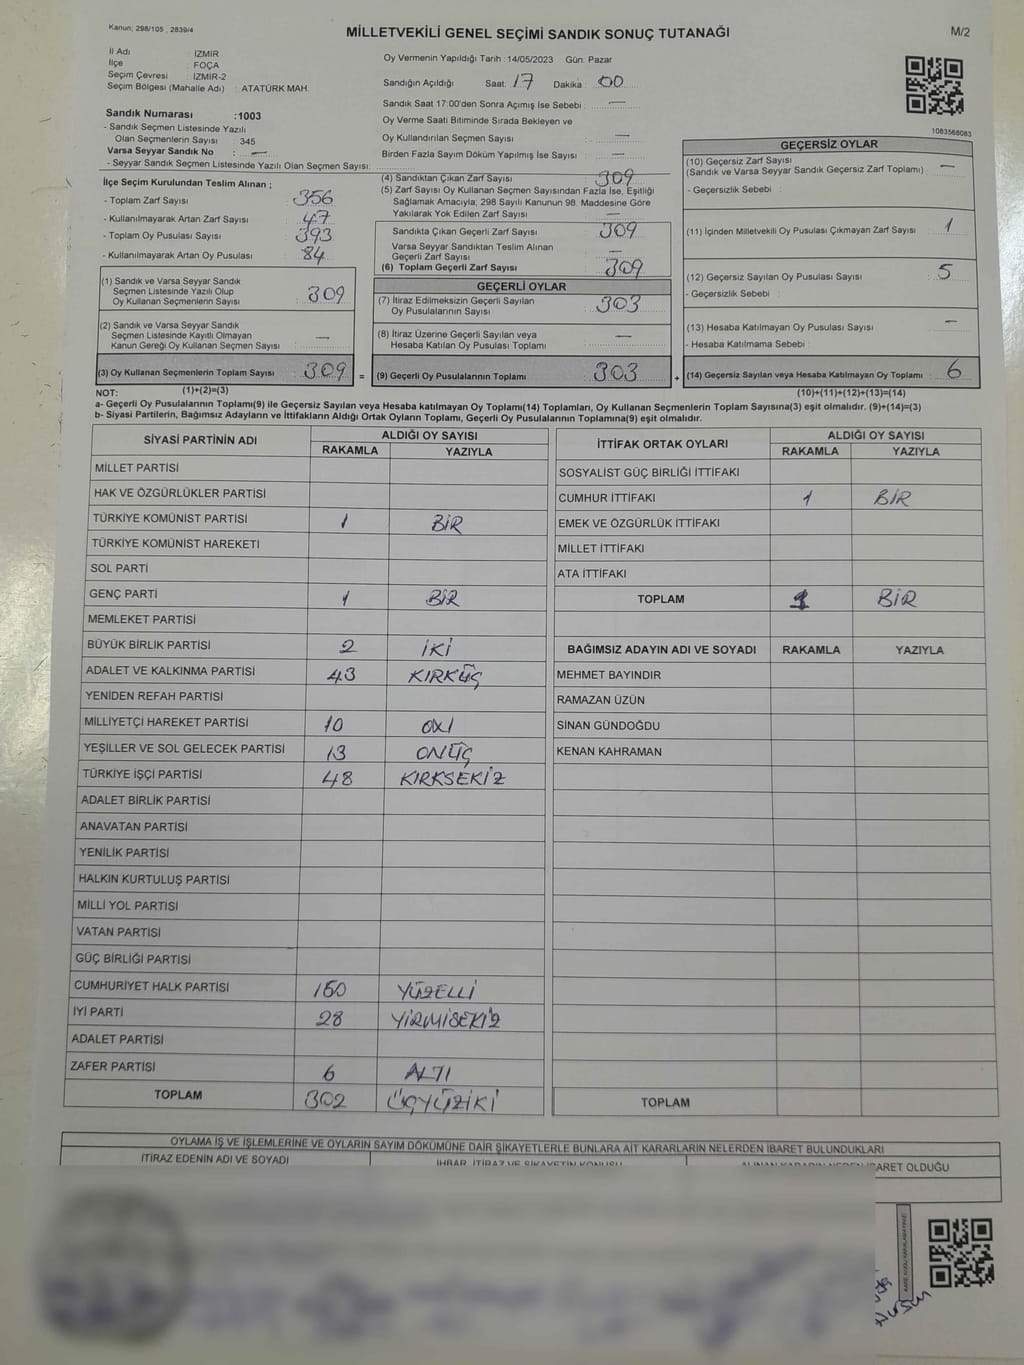 Kanun; 298/105 , 2839/4
MİLLETVEKİLİ GENEL SEÇİMİ SANDIK SONUÇ TUTANAĞI
M/2
İl Adı : İZMİR
İlçe : FOÇA
Seçim Çevresi : İZMİR-2
Seçim Bölgesi (Mahalle Adı) : ATATÜRK MAH.
Oy Vermenin Yapıldığı Tarih : 14/05/2023 Gün: Pazar
Sandığın Açıldığı Saat: 17 Dakika : 00
Sandık Saat 17:00'den Sonra Açımış İse Sebebi : —
Oy Verme Saati Bitiminde Sırada Bekleyen ve
Oy Kullandırılan Seçmen Sayısı —
Birden Fazla Sayım Döküm Yapılmış İse Sayısı : —
1083568083
Sandık Numarası :1003
- Sandık Seçmen Listesinde Yazılı
Olan Seçmenlerin Sayısı : 345
Varsa Seyyar Sandık No : —
- Seyyar Sandık Seçmen Listesinde Yazılı Olan Seçmen Sayısı:
İlçe Seçim Kurulundan Teslim Alınan ;
- Toplam Zarf Sayısı : 356
- Kullanılmayarak Artan Zarf Sayısı : 47
- Toplam Oy Pusulası Sayısı : 393
- Kullanılmayarak Artan Oy Pusulası : 84
(1) Sandık ve Varsa Seyyar Sandık
Seçmen Listesinde Yazılı Olup
Oy Kullanan Seçmenlerin Sayısı : 309
(2) Sandık ve Varsa Seyyar Sandık
Seçmen Listesinde Kayıtlı Olmayan
Kanun Gereği Oy Kullanan Seçmen Sayısı : —
(3) Oy Kullanan Seçmenlerin Toplam Sayısı : 309 =
(1)+(2)=(3)
(4) Sandıktan Çıkan Zarf Sayısı : 309
(5) Zarf Sayısı Oy Kullanan Seçmen Sayısından Fazla İse, Eşitliği
Sağlamak Amacıyla; 298 Sayılı Kanunun 98. Maddesine Göre
Yakılarak Yok Edilen Zarf Sayısı : —
Sandıkta Çıkan Geçerli Zarf Sayısı : 309
Varsa Seyyar Sandıktan Teslim Alınan
Geçerli Zarf Sayısı : —
(6) Toplam Geçerli Zarf Sayısı : 309
GEÇERLİ OYLAR
(7) İtiraz Edilmeksizin Geçerli Sayılan
Oy Pusulalarının Sayısı : 303
(8) İtiraz Üzerine Geçerli Sayılan veya
Hesaba Katılan Oy Pusulası Toplamı : —
(9) Geçerli Oy Pusulalarının Toplamı : 303 +
GEÇERSİZ OYLAR
(10) Geçersiz Zarf Sayısı
(Sandık ve Varsa Seyyar Sandık Geçersiz Zarf Toplamı) : —
- Geçersizlik Sebebi :
(11) İçinden Milletvekili Oy Pusulası Çıkmayan Zarf Sayısı : 1
(12) Geçersiz Sayılan Oy Pusulası Sayısı : 5
- Geçersizlik Sebebi :
(13) Hesaba Katılmayan Oy Pusulası Sayısı : —
- Hesaba Katılmama Sebebi :
(14) Geçersiz Sayılan veya Hesaba Katılmayan Oy Toplamı : 6
(10)+(11)+(12)+(13)=(14)
NOT:
a- Geçerli Oy Pusulalarının Toplamı(9) ile Geçersiz Sayılan veya Hesaba katılmayan Oy Toplamı(14) Toplamları, Oy Kullanan Seçmenlerin Toplam Sayısına(3) eşit olmalıdır. (9)+(14)=(3)
b- Siyasi Partilerin, Bağımsız Adayların ve İttifakların Aldığı Ortak Oyların Toplamı, Geçerli Oy Pusulalarının Toplamına(9) eşit olmalıdır.
SİYASİ PARTİNİN ADI ALDIĞI OY SAYISI
RAKAMLA YAZIYLA
MİLLET PARTİSİ
HAK VE ÖZGÜRLÜKLER PARTİSİ
TÜRKİYE KOMÜNİST PARTİSİ 1 BİR
TÜRKİYE KOMÜNİST HAREKETİ
SOL PARTİ
GENÇ PARTİ 1 BİR
MEMLEKET PARTİSİ
BÜYÜK BİRLİK PARTİSİ 2 İKİ
ADALET VE KALKINMA PARTİSİ 43 KIRKÜÇ
YENİDEN REFAH PARTİSİ
MİLLİYETÇİ HAREKET PARTİSİ 10 ON
YEŞİLLER VE SOL GELECEK PARTİSİ 13 ONÜÇ
TÜRKİYE İŞÇİ PARTİSİ 48 KIRKSEKİZ
ADALET BİRLİK PARTİSİ
ANAVATAN PARTİSİ
YENİLİK PARTİSİ
HALKIN KURTULUŞ PARTİSİ
MİLLİ YOL PARTİSİ
VATAN PARTİSİ
GÜÇ BİRLİĞİ PARTİSİ
CUMHURİYET HALK PARTİSİ 150 YÜZELLİ
İYİ PARTİ 28 YİRMİSEKİZ
ADALET PARTİSİ
ZAFER PARTİSİ 6 ALTI
TOPLAM 302 ÜÇYÜZİKİ
İTTİFAK ORTAK OYLARI ALDIĞI OY SAYISI
RAKAMLA YAZIYLA
SOSYALİST GÜÇ BİRLİĞİ İTTİFAKI
CUMHUR İTTİFAKI 1 BİR
EMEK VE ÖZGÜRLÜK İTTİFAKI
MİLLET İTTİFAKI
ATA İTTİFAKI
TOPLAM 1 BİR
BAĞIMSIZ ADAYIN ADI VE SOYADI RAKAMLA YAZIYLA
MEHMET BAYINDIR
RAMAZAN ÜZÜN
SİNAN GÜNDOĞDU
KENAN KAHRAMAN
TOPLAM
OYLAMA İŞ VE İŞLEMLERİNE VE OYLARIN SAYIM DÖKÜMÜNE DAİR ŞİKAYETLERLE BUNLARA AİT KARARLARIN NELERDEN İBARET BULUNDUKLARI
İTİRAZ EDENİN ADI VE SOYADI İHBAR, İTİRAZ VE ŞİKAYETİN KONUSU ALINAN KARARIN NEDEN İBARET OLDUĞU